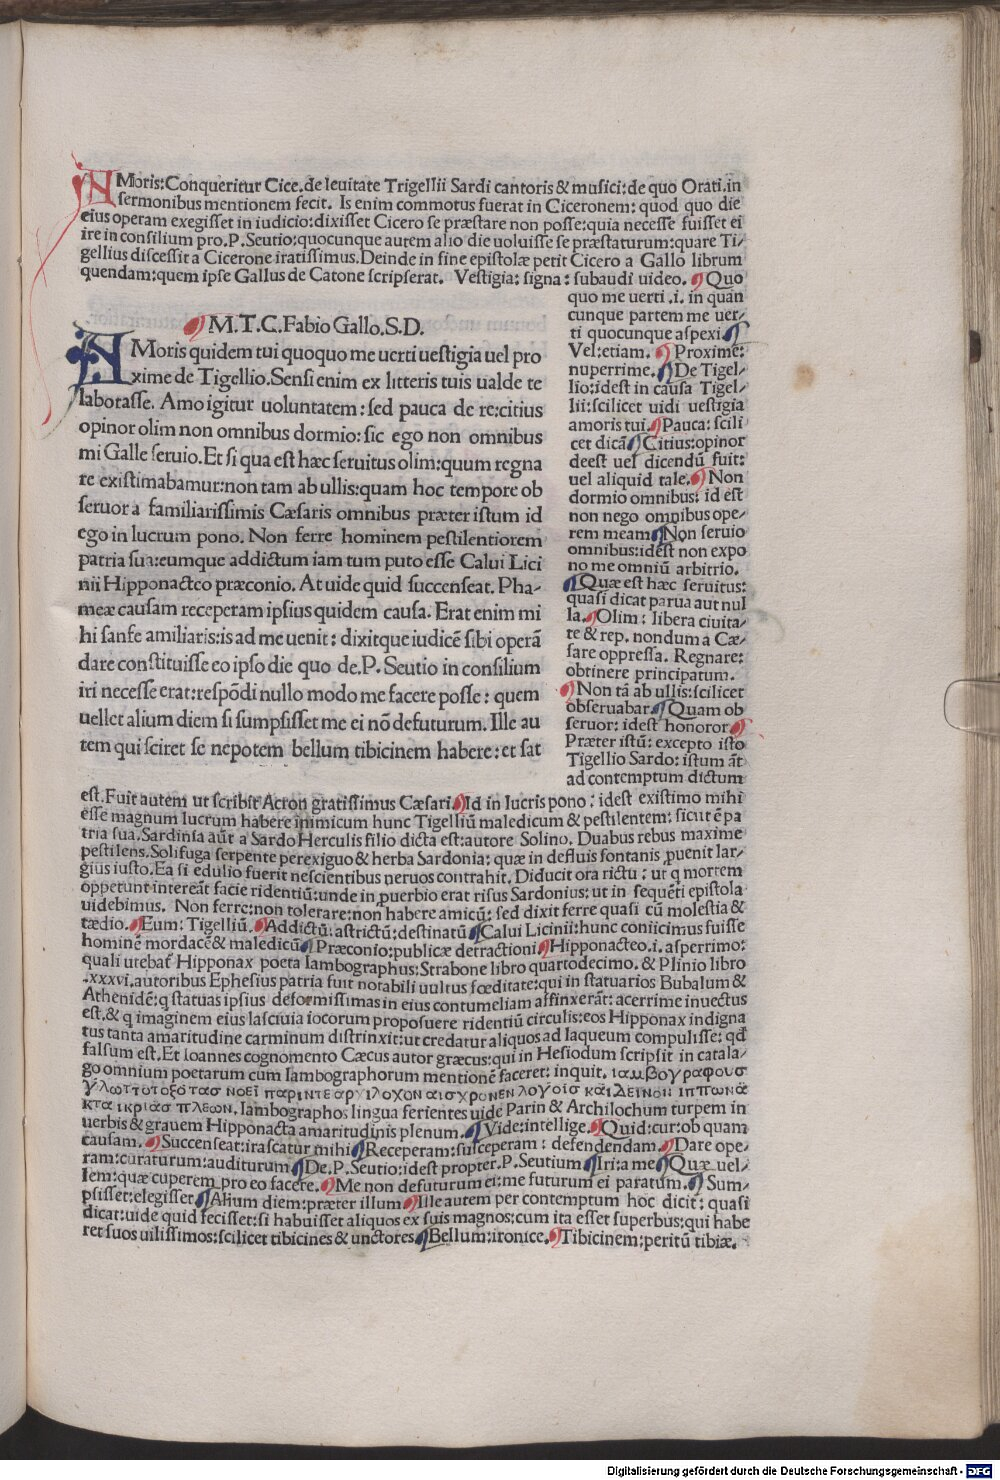 AMoris:Conqueritur Cice.de leuitate Trigellii Sardi cantoris & musici:de quo Orati.in
sermonibus mentionem fecit. Is enim commotus fuerat in Ciceronem: quod quo die
eius operam exegisset in iudicio:dixisset Cicero se præstare non posse:quia necesse fuisset ei
ire in consilium pro.P.Seutio:quocunque autem alio die uoluisse se præstaturum:quare Ti-
gellius discessit a Cicerone iratissimus.Deinde in fine epistolæ petit Cicero a Gallo librum
quendam:quem ipse Gallus de Catone scripserat. Vestigia: signa: subaudi uideo. ¶Quo
quo me uerti .i. in quan
cunque partem me uer-
ti quocunque aspexi.¶
Vel:etiam. ¶Proxime:
nuperrime.¶De Tigel-
lio:idest in causa Tigel-
lii:scilicet uidi uestigia
amoris tui.¶Pauca: scili
cet dicã¶Citius:opinor
deest uel dicendũ fuit:
uel aliquid tale.¶Non
dormio omnibus: id est
non nego omnibus ope-
rem meam¶Non seruio
omnibus:idest non expo
no me omniũ arbitrio.
¶Quæ est hæc seruitus:
quasi dicat parua aut nul
la.¶Olim: libera ciuita-
te & rep. nondum a Cæ-
sare oppressa. Regnare:
obtinere principatum.
¶Non tã ab ullis:scilicet
obseruabar¶Quam ob
seruor: idest honoror¶
Præter istũ: excepto isto
Tigellio Sardo: istum ãt
ad contemptum dictum
¶M.T.C.Fabio Gallo.S.D.
AMoris quidem tui quoquo me uerti uestigia uel pro
xime de Tigellio.Sensi enim ex litteris tuis ualde te
laborasse. Amo igitur uoluntatem: sed pauca de re:citius
opinor olim non omnibus dormio: sic ego non omnibus
mi Galle seruio.Et si qua est hæc seruitus olim:quum regna
re existimabamur:non tam ab ullis:quam hoc tempore ob
seruor a familiarissimis Cæsaris omnibus præter istum id
ego in lucrum pono. Non ferre hominem pestilentiorem
patria sua:eumque addictum iam tum puto esse Calui Lici
nii Hipponacteo præconio. At uide quid succenseat. Pha-
meæ causam receperam ipsius quidem causa. Erat enim mi
hi sanfe amiliaris:is ad me uenit: dixitque iudicẽ sibi operã
dare constituisse eo ipso die quo de.P. Seutio in consilium
iri necesse erat:respõdi nullo modo me facere posse: quem
uellet alium diem si sumpsisset me ei nõ defuturum. Ille au
tem qui sciret se nepotem bellum tibicinem habere: et sat
est.Fuit autem ut scribit Acron gratissimus Cæsari.¶Id in lucris pono: idest existimo mihi
esse magnum lucrum habere inimicum hunc Tigelliũ maledicum & pestilentem: sicut ẽ pa
tria sua.Sardinia aũt a Sardo Herculis filio dicta est:autore Solino. Duabus rebus maxime
pestilens.Solifuga serpente perexiguo & herba Sardonia: quæ in defluis fontanis ꝓuenit lar-
gius iusto.Ea si edulio fuerit nescientibus neruos contrahit. Diducit ora rictu: ut q mortem
oppetunt intereãt facie ridentiũ:unde in ꝓuerbio erat risus Sardonius: ut in sequẽti epistola
uidebimus. Non ferre:non tolerare:non habere amicũ: sed dixit ferre quasi cũ molestia &
tædio.¶Eum: Tigelliũ.¶Addictũ: astrictũ: destinatũ¶Calui Licinii:hunc coniicimus fuisse
hominẽ mordacẽ & maledicũ¶Præconio:publicæ detractioni¶Hipponacteo.i.asperrimo:
quali utebat̃ Hipponax poeta Iambographus:Strabone libro quartodecimo. & Plinio libro
.xxxvi.autoribus Ephesius patria fuit notabili uultus fœditate:qui in statuarios Bubalum &
Athenidẽ:q statuas ipsius deformissimas in eius contumeliam affinxerãt: acerrime inuectus
est.& q imaginem eius lasciuia iocorum proposuere ridentiũ circulis:eos Hipponax indigna
tus tanta amaritudine carminum distrinxit:ut credatur aliquos ad laqueum compulisse: qđ
falsum est.Et Ioannes cognomento Cæcus autor græcus:qui in Hesiodum scripsit in catala-
go omnium poetarum cum Iambographorum mentionẽ faceret: inquit. ιαμβογραφουσ
γλωττοτοξοτασ νοει παριντε αρχιλοχον αισχρονεν λογοισ και δεινον ιππωνα
κτα ικριασ πλεων. Iambographos lingua ferientes uide Parin & Archilochum turpem in
uerbis & grauem Hipponacta amaritudinis plenum.¶Vide:intellige.¶Quid:cur:ob quam
causam. ¶Succenseat:irascatur mihi¶Receperam:susceperam: defendendam.¶Dare ope-
ram:curaturum:auditurum¶De.P.Seutio:idest propter.P.Seutium¶Iri:a me¶Quæ uel-
lem:quæ cuperem pro eo facere.¶Me non defuturum ei:me futurum ei paratum.¶Sum-
psisset:elegisset¶Alium diem:præter illum¶Ille autem per contemptum hoc dicit: quasi
dicat:uide quid fecisset:si habuisset aliquos ex suis magnos:cum ita esset superbus:qui habe
ret suos uilissimos:scilicet tibicines & unctores¶Bellum:ironice.¶Tibicinem:peritũ tibiæ.
Digitalisierung gefördert durch die Deutsche Forschungsgemeinschaft - DFG